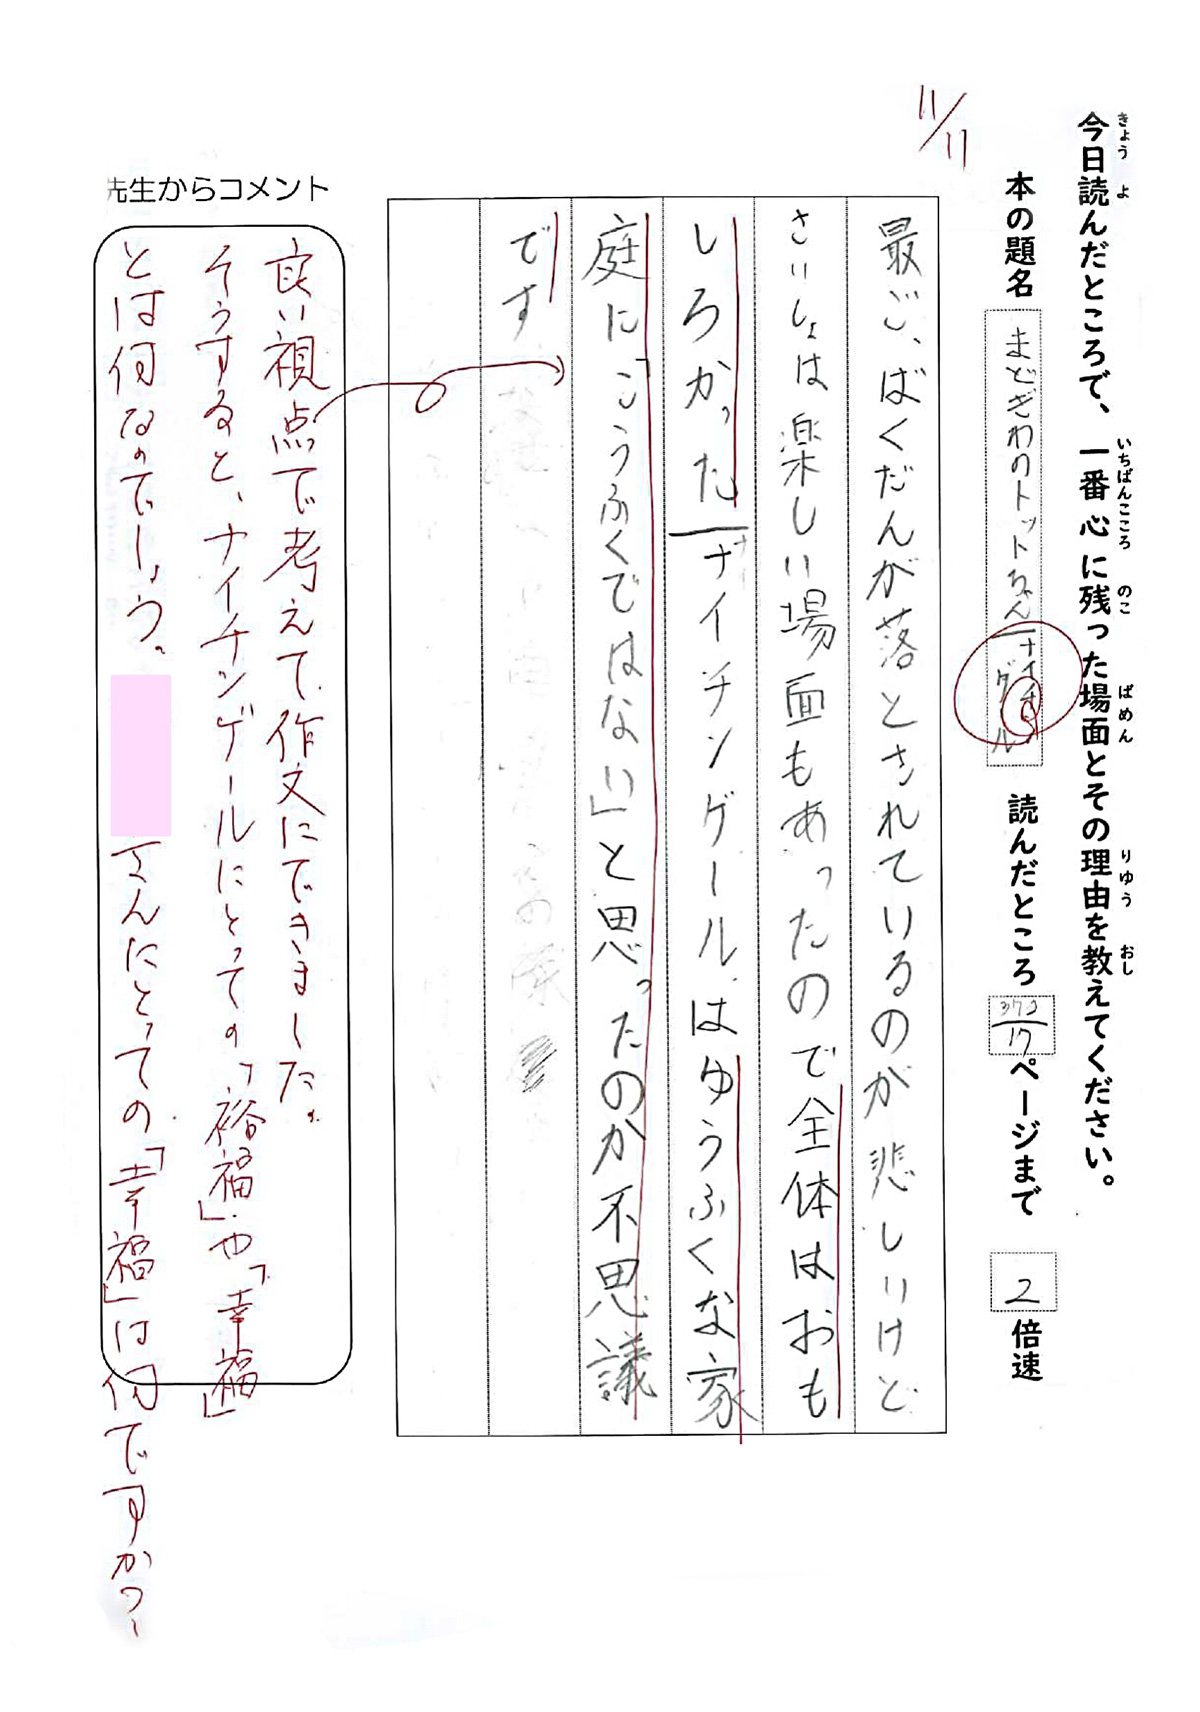 11/17
今日読んだところで、一番心に残った場面とその理由を教えてください。
きょう よ いちばんこころ のこ ばめん りゆう おし
本の題名 まどぎわのトットちゃん/ナイチンゲール 読んだところ 372/17 ページまで 2 倍速
最ご、ばくだんが落とされているのが悲しいけど
さいしょは楽しい場面もあったので全体はおも
しろかった/ナイチンゲールはゆうふくな家
庭に「こうふくではない」と思ったのか不思議
です
先生からコメント
良い視点で考えて作文にできました。
そうすると、ナイチンゲールにとっての「裕福」や「幸福」
とは何なのでしょう。
さんにとっての「幸福」は何ですか?